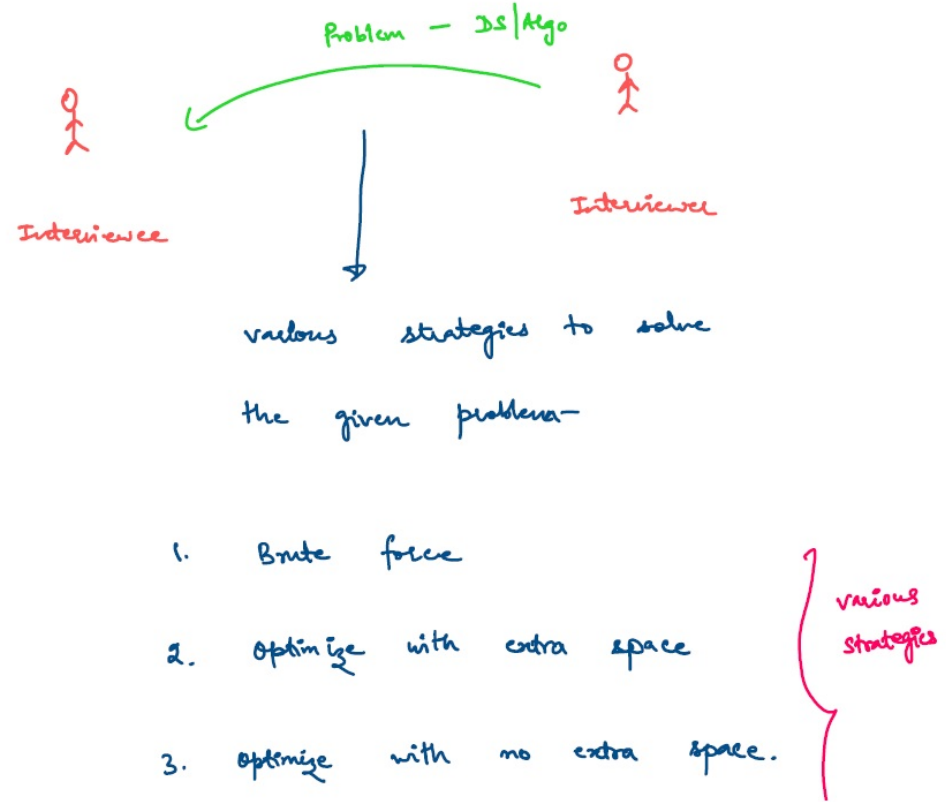 Problem - DS/Algo
Interviewee
Interviewer
various strategies to solve
the given problem-
1. Brute force
2. optimize with extra space
3. optimize with no extra space.
various
strategies